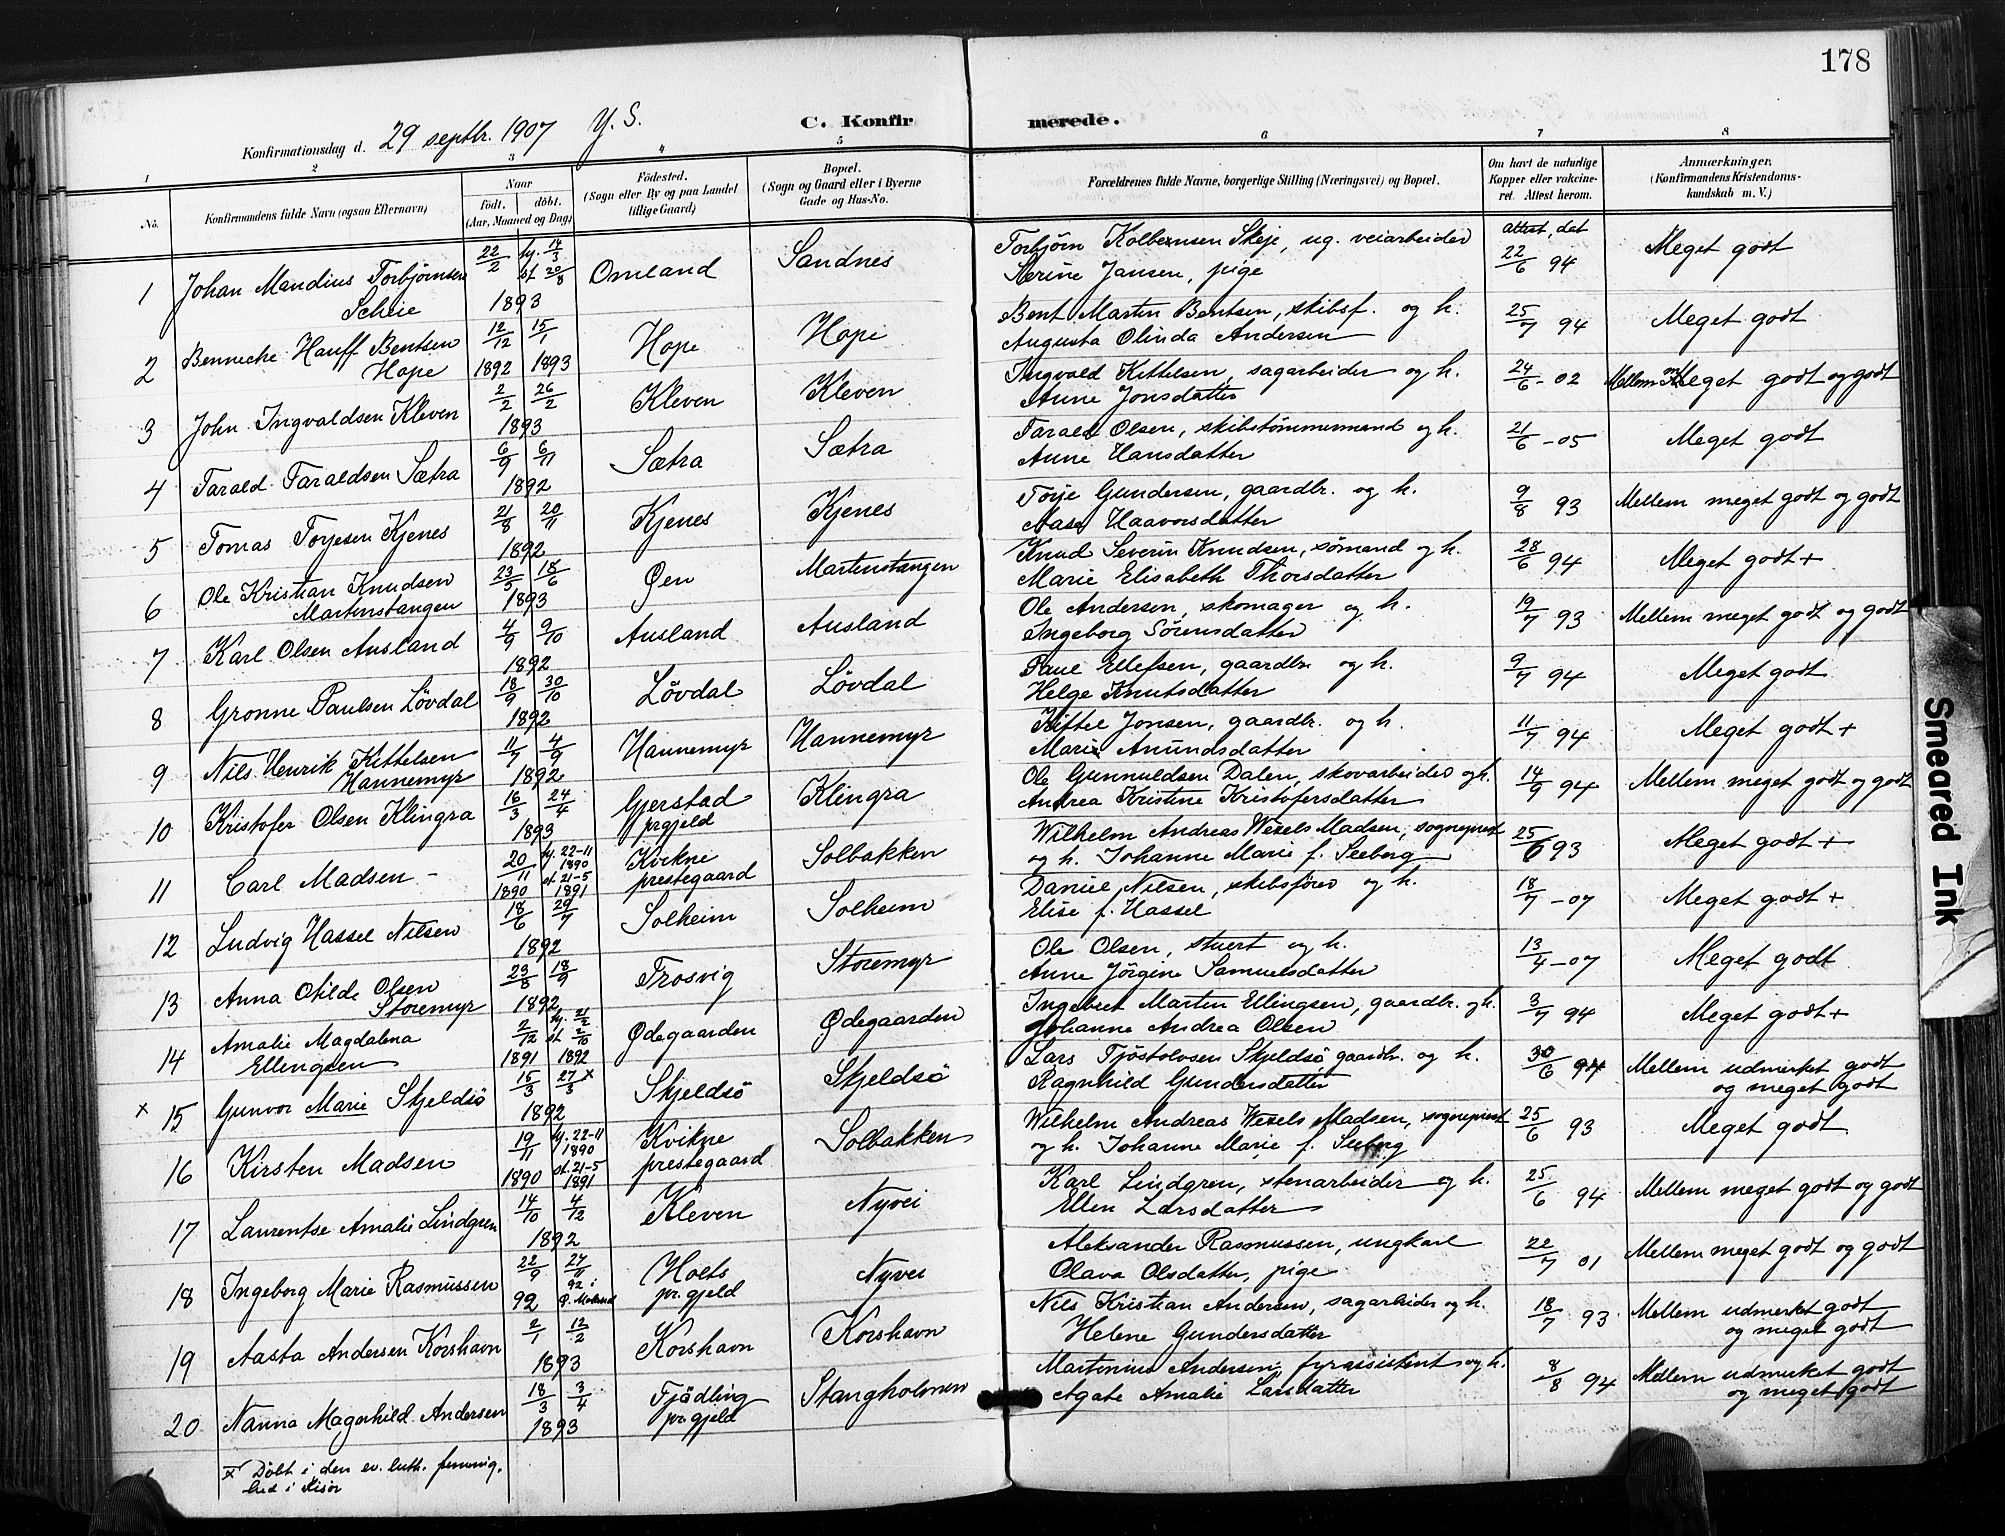 178
Konfirmationsdag d. 29 septbr. 1907 Y. S.
C. Konfirmerede.
1 2 3 4 5 6 7 8
No.
Konfirmandens fulde Navn (ogsaa Efternavn)
Naar født. døbt. (Aar, Maaned og Dag)
Fødested. (Sogn eller By og paa Landet tillige Gaard)
Bopæl. (Sogn og Gaard eller i Byerne Gade og Hus-No.
Forældrenes fulde Navne, borgerlige Stilling (Næringsvei) og Bopæl.
Om havt de naturlige Kopper eller vakcineret. Attest herom.
Anmærkninger. (Konfirmandens Kristendomskundskab m. V.)
1 Johan Mandius Torbjørnsen Scheie 22/2 1893 hj. 14/3 st 20/8 Omland Sandnes Torbjørn Kolbernsen Skeje, ug. veiarbeider Serine Jansen, pige attest, dat 22/6 94 Meget godt
2 Bennecke Hauff Bentsen Hope 12/12 1892 15/1 1893 Hope Hope Bent Martin Bentsen, skibsf. og h. Augusta Olinda Andersen 25/7 94 Meget godt
3 John Ingvaldsen Kleven 2/2 26/2 1893 Kleven Kleven Ingvald Kittelsen, sagarbeider og h. Anne Jonsdatter 24/6 - 02 Mellem Meget godt og godt
4 Tarald Taraldsen Sætra 6/9 6/11 1892 Sætra Sætra Tarald Olsen, skibstømmermand og h. Anne Hansdatter 21/6 - 05 Meget godt
5 Tomas Torjesen Kjenes 21/8 20/11 1892 Kjenes Kjenes Torje Gundersen, gaardbr. og h. Aase Haavorsdatter 9/8 93 Mellem meget godt og godt
6 Ole Kristian Knudsen Martenstangen 23/5 18/6 1893 Øen Martenstangen Knud Severin Knudsen, sømand og h. Marie Elisabeth Thorsdatter 28/6 94 Meget godt +
7 Karl Olsen Ausland 4/9 9/10 1892 Ausland Ausland Ole Andersen, skomager og h. Ingeborg Sørensdatter 19/7 93 Mellem meget godt og godt
8 Gronne Paulsen Løvdal 18/9 30/10 1892 Løvdal Løvdal Paul Ellefsen, gaardbr og h. Helge Knutsdatter 9/7 94 Meget godt
9 Nils Henrik Kittelsen Hannemyr 11/7 4/9 1892 Hannemyr Hannemyr Kittel Jonsen, gaardbr. og h. Marie Anundsdatter 11/7 94 Meget godt +
10 Kristofer Olsen Klingra 16/3 24/4 1893 Gjerstad prgjeld Klingra Ole Gunnuldsen Dalen, skovarbeider og h. Andrea Kristine Kristofersdatter 14/9 94 Mellem meget godt og godt
11 Carl Madsen - 20/11 1890 hj. 22-11 1890 st 21-5 1891 Kvikne prestegaard Solbakken Wilhelm Andreas Wexels Madsen, sogneprest og h. Johanne Marie f. Seeberg 25/6 93 Meget godt +
12 Ludvig Hassel Nilsen 18/6 29/7 1892 Solheim Solheim Daniel Nilsen, skibsfører og h. Elise f. Hassel 18/7 - 07 Meget godt +
13 Anna Otilde Olsen Storemyr 23/8 18/9 1892 Trosvig Storemyr Ole Olsen, stuert og h. Anne Jørgine Samuelsdatter 13/4 - 07 Meget godt
14 Amalie Magdalena Ellingsen 2/12 1891 hj. 21/2 st 2/10 1892 Ødegaarden Ødegaarden Ingebret Martin Ellingsen, gaardbr. og h. Johanne Andrea Olsen 3/7 94 Meget godt +
x 15 Gunvor Marie Skjeldsø 15/3 27/3 x 1892 Skjeldsø Skjeldsø Lars Tjøstolvsen Skjeldsø gaardbr. og h. Ragnhild Gundersdatter 30/6 94 Mellem udmerket godt og meget godt
16 Kirsten Madsen 19/11 1890 hj. 22-11 1890 st. 21-5 1891 Kvikne prestegaard Solbakken Wilhelm Andreas Wexels Madsen, sogneprest og h. Johanne Marie f. Seeberg 25/6 93 Meget godt
17 Laurentse Amalie Lindgren 14/10 4/12 1892 Kleven Nyvei Karl Lindgren, stenarbeider og h. Ellen Larsdatter 25/6 94 Mellem meget godt og godt
18 Ingeborg Marie Rasmussen 22/9 92 27/11 92 i Holts pr. gjeld Nyvei Aleksander Rasmussen, ungkarl Olava Olsdatter, pige 22/7 01 Mellem meget godt og godt
19 Aasta Andersen Korshavn 2/1 12/2 1893 Korshavn Korshavn Nils Kristian Andersen, sagarbeider og h. Helene Gundersdatter 18/7 93 Mellem udmerket godt og meget godt
20 Nanna Magnhild Andersen 18/3 3/4 1893 Fjødling pr. gjeld Stangholmen Martinius Andersen, fyrassistent og h. Agate Amalie Larsdatter 8/8 94 Mellem udmerket godt og meget godt
x Døbt i den ev. luth. frimenig. hed i Risør
Smeared Ink